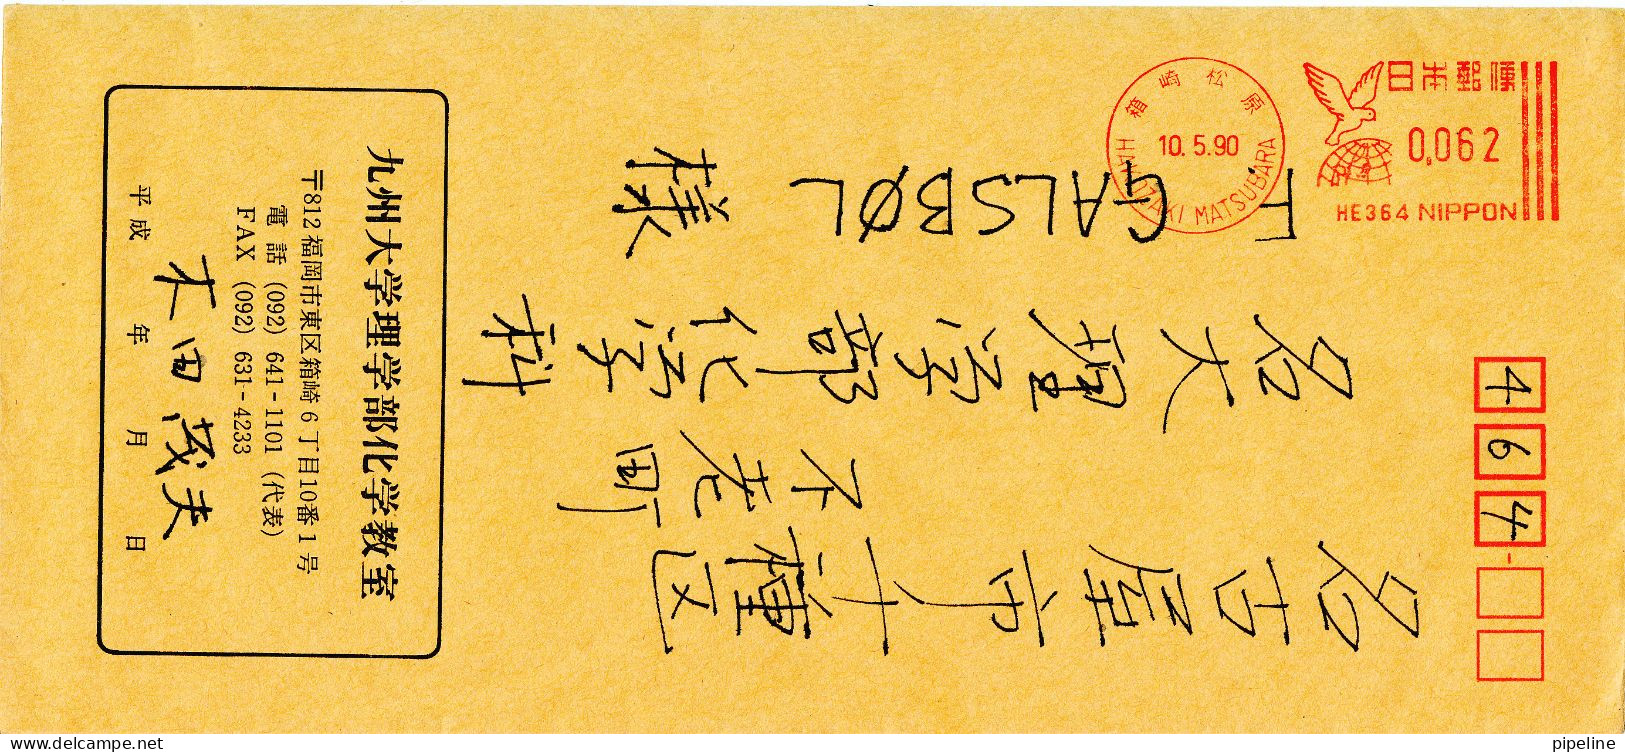 日本郵便
0,062
HE364 NIPPON
箱崎松原
10.5.90
HAKOZAKI MATSUBARA
464-
名古屋市千種区
不老町
名大理学部化学科
T. GALSBØL様
九州大学理学部化学教室
〒812 福岡市東区箱崎6丁目10番1号
電話 (092) 641-1101 (代表)
FAX (092) 631-4233
木田茂夫
平成 年 月 日
www.delcampe.net
pipeline